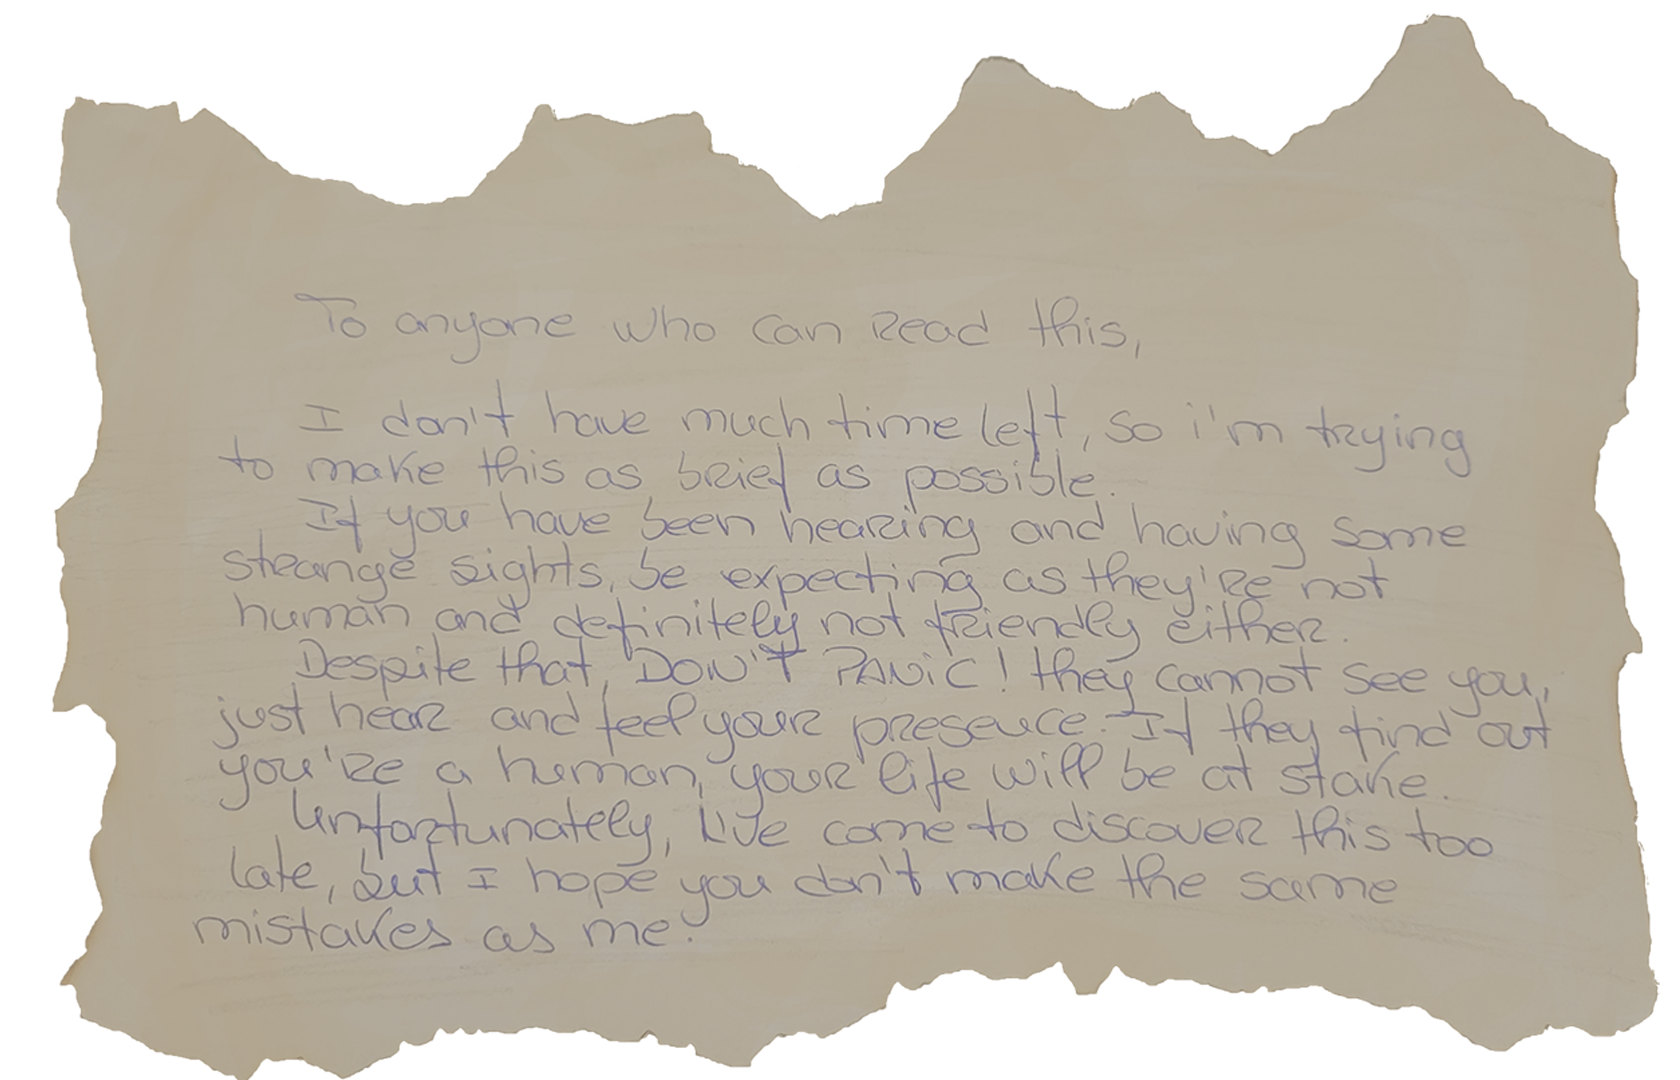 To anyone who can read this,
I don't have much time left, so i'm trying
to make this as brief as possible.
If you have been hearing and having some
strange sights, be expecting as they're not
human and definitely not friendly either.
Despite that, DON'T PANiC! they cannot see you,
just hear and feel your presence. If they find out
you're a human, your life will be at stake.
Unfortunately, I've come to discover this too
late, but I hope you don't make the same
mistakes as me.